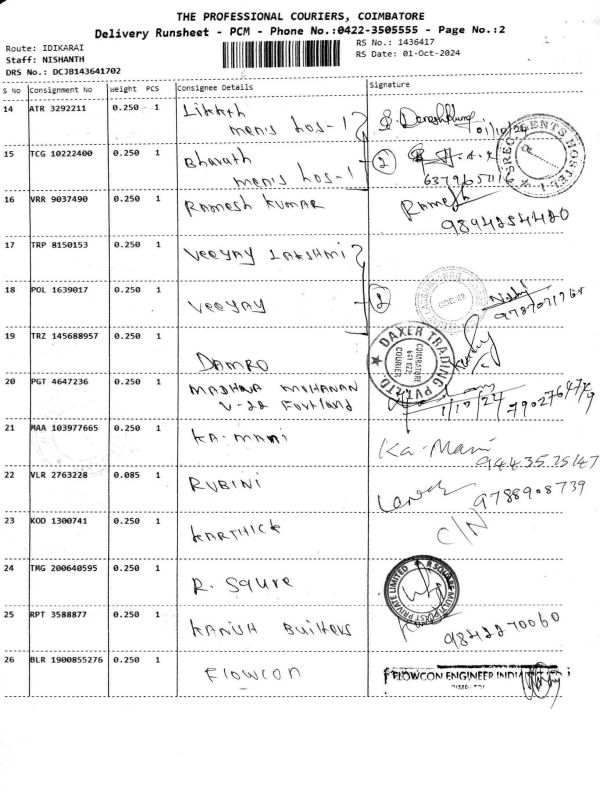 THE PROFESSIONAL COURIERS, COIMBATORE
Delivery Runsheet - PCM - Phone No.:0422-3505555 - Page No.:2
Route: IDIKARAI
RS No.: 1436417
Staff: NISHANTH
RS Date: 01-Oct-2024
DRS No.: DCJB143641702
S No Consignment No Weight PCS Consignee Details Signature
14 ATR 3292211 0.250 1 Likhth
men's hos-1
01/10/24
15 TCG 10222400 0.250 1 Bharath
men's hos-1 2
16 VRR 9037490 0.250 1 Ramesh Kumar Ramesh
9894254420
17 TRP 8150153 0.250 1 Veeyay Lakshmi
18 POL 1639017 0.250 1 Veeyay 2
9787071960
19 TRZ 145688957 0.250 1 DAMRO
DAXER TRADING PVT. LTD
COIMBATORE
641 022
COURIER
20 PGT 4647236 0.250 1 MADHNA MOHANAN
V-22 Fortland
1/10/24
21 MAA 103977665 0.250 1 KA-MANI Ka-Mani
22 VLR 2763228 0.085 1 RUBINI
9788908739
23 KOD 1300741 0.250 1 KARTHICK C/N
24 TMG 200640595 0.250 1 R. Squre
25 RPT 3588877 0.250 1 KANISH Buihers
9842270060
26 BLR 1900855276 0.250 1 FLOWCON
FLOWCON ENGINEER INDIA